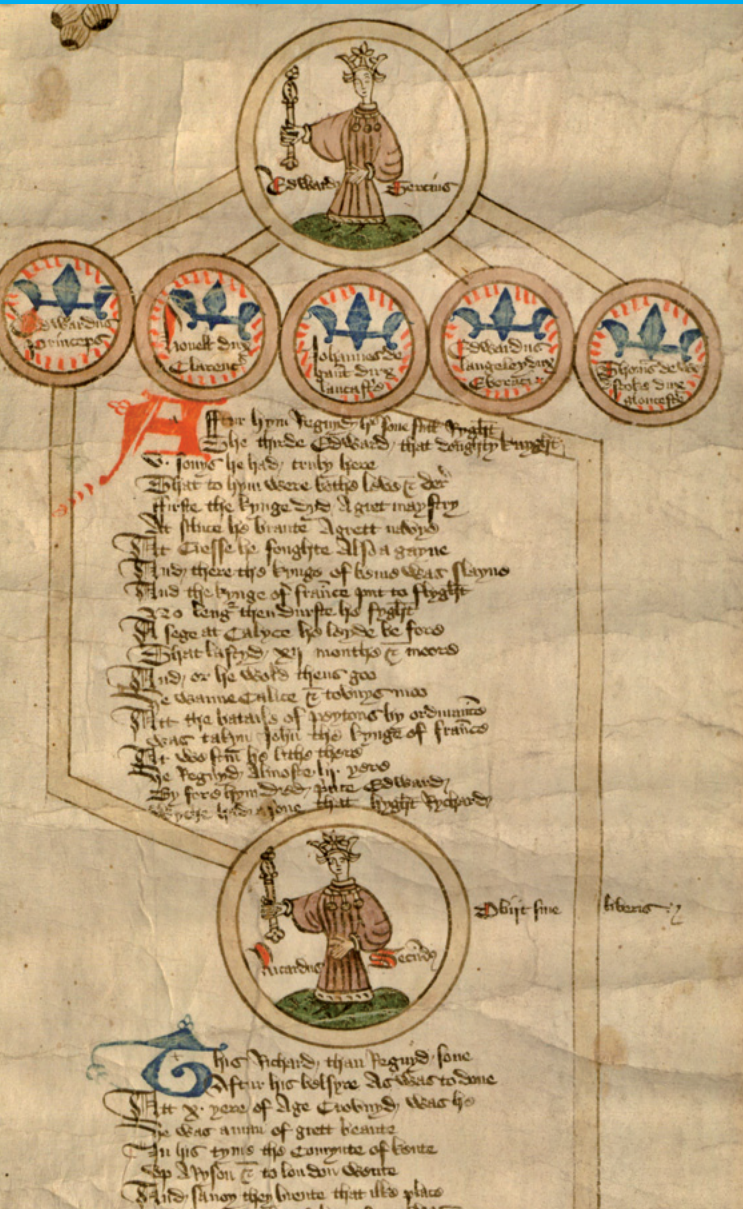 Edward Tercius
Edwardus
princeps
dux
Clarenc
Johannes de
gaunt dux
lancastr
Edwardus
langeley dux
Eboraci
Thomas de
stoke dux
gloucestr
After hym Regnyd his sone full Ryght
The thirde Edward, that doughty knyght
sonys he had, truly here
That to hym were bothe leve & der
ffirste the kynge dyd A gret maystry
At sluce he brante A grett navye
At Cresse he foughte Also a gayne
And there the kynge of beme was slayne
And the kynge of france put to flyght
No leng then durste he fyght
A sege at Calyce he layde be fore
That lastyd xij monthe & more
And or he wold thens goo
He wanne Calice & townys moo
Att the bataile of peytons by ordinance
was takyn John the kynge of france
At westm he lithe there
He Regnyd Almoste lij yere
By fore hym dyed prince Edward
had a sone that hyght Rychard
Ricardus Secundus
Obiit sine liberis
This Richard than Regnyd sone
Aftur his belsyre As was to done
Att x yere of Age Crownyd was he
He was a man of grett beaute
In his tyme the Comynte of kente
Up A Ryson & to london wente
And savoy they brente that ilke place